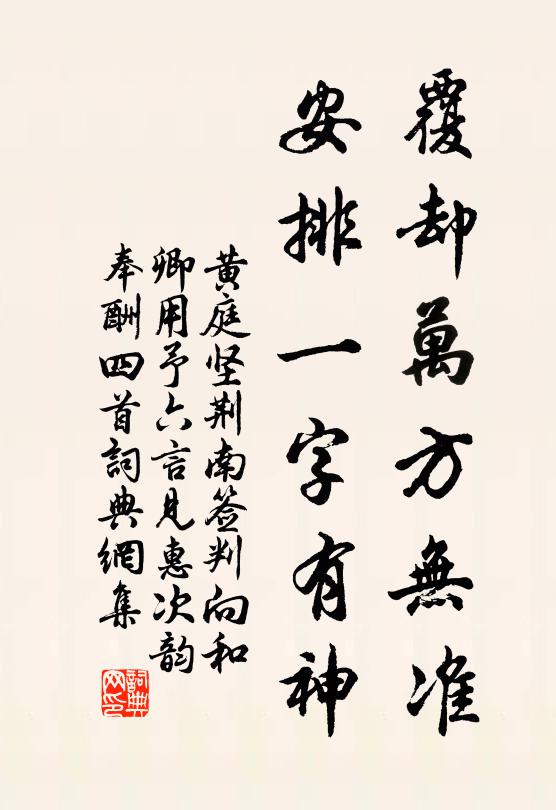 覆却萬方無准
安排一字有神
黄庭坚荆南签判向和
卿用予六言見惠次韵
奉酬四首詞典網集
詞典
网印